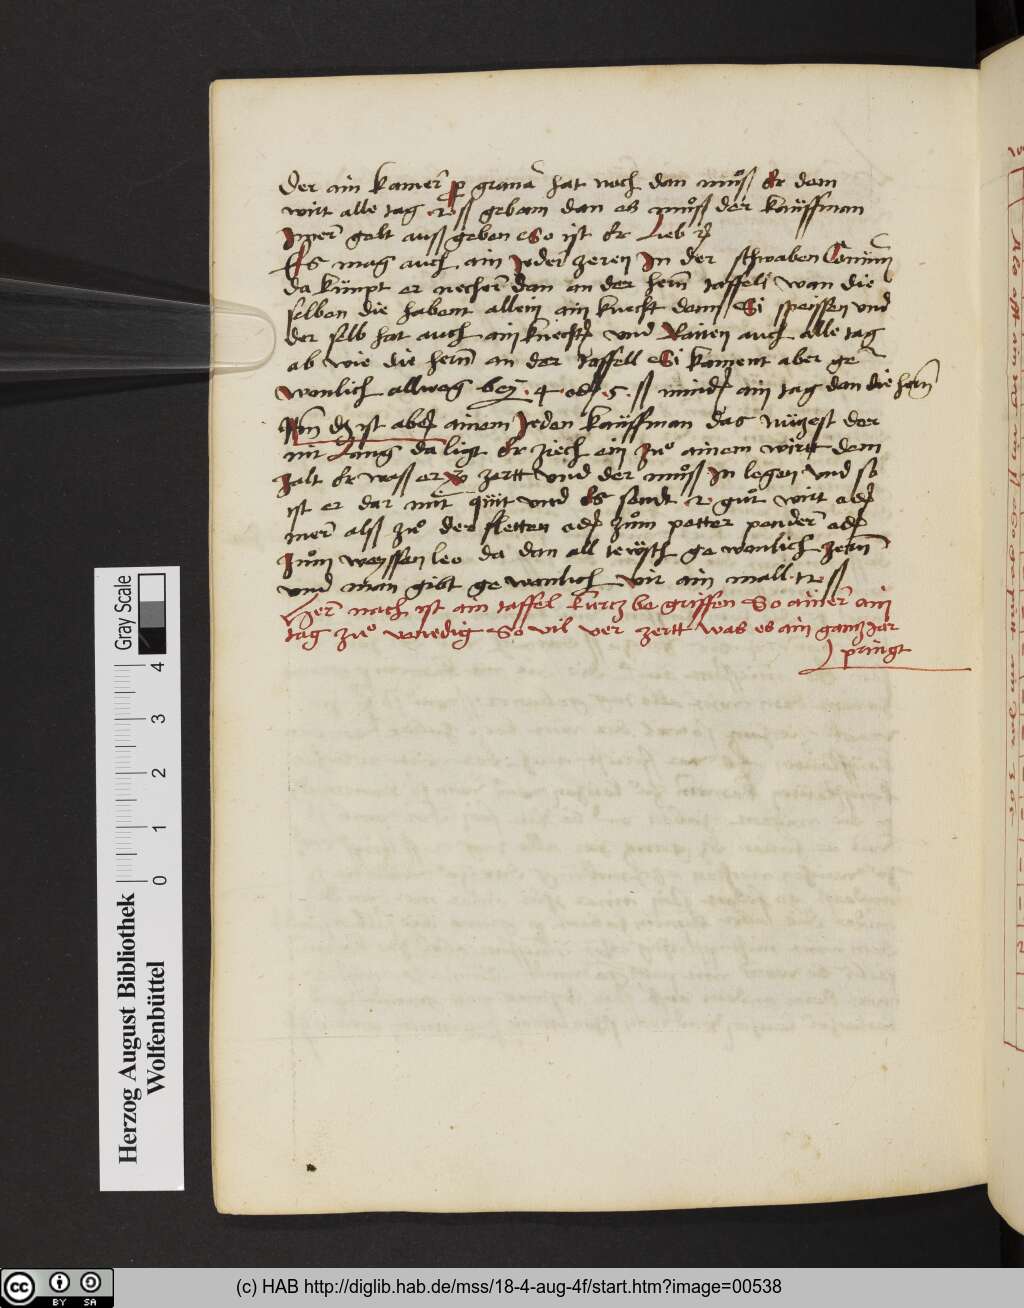 Der ain kamer̄ p granā hat noch dan muͦß Er dem
wirt alle tag ß geben dan es muͦß der kauffman
Imer̄ gelt auß geben So ist Er Lieb
Es mag auch ain Jeder zeren In der schwaben Comūn
da kumpt er necher̄ dan an der herñ taffell wan die
selben die habent allein ain knecht dem Si speissen vnd
der selb hat auch ain knecht vnd Raiten auch alle tag
ab wie die herñ an der taffell Si kament aber ge
wonlich allweg bey · 4 · oder · 5 · ß minder ain tag dan die herñ
Jtm dz ist aber ainem Jeden kauffman das nuczest der
nit Lang da ligt Er ziech ein zuͦ ainem wirtt dem
zalt Er waß er verzertt vnd der muͦß In legen vnd so
ist er dar mit quit vnd Es sendt 2 guͦt wirt oder
mer̄ alß zuͦ der fletten oder zuͦm petter pender̄ oder
zuͦm weyssen leo da dan all tewtsch ge wonlich zerñ
vnd man gibt ge wonlich vir ain mall · 12 ß
Her̄ nach ist ain taffel kurcz be griffen So ainer̄ ain
tag zuͦ venedig So vil ver zertt was es ain gancz Jar
pringt
Gray Scale
4
3
2
1
0
Herzog August Bibliothek
Wolfenbüttel
cc BY SA
(c) HAB http://diglib.hab.de/mss/18-4-aug-4f/start.htm?image=00538